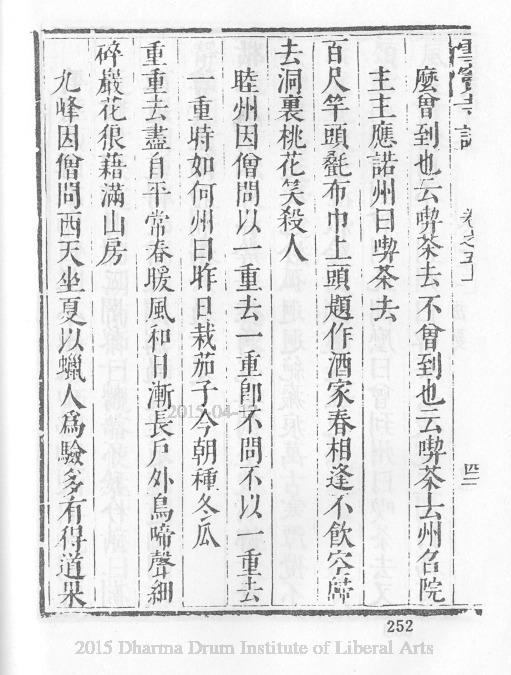 雲寶寺誌 卷之五上 四二
麼曾到也云喫茶去不曾到也云喫茶去州召院
主主應諾州曰喫茶去
百尺竿頭㲲布巾上頭題作酒家春相逢不飲空歸
去洞裏桃花笑殺人
睦州因僧問以一重去一重卽不問不以一重去
一重時如何州曰昨日栽茄子今朝種冬瓜
重重去盡自平常春暖風和日漸長戶外鳥啼聲細
碎巖花狼藉滿山房
九峰因僧問西天坐夏以蠟人爲驗多有得道果
2015-04-17
252
2015 Dharma Drum Institute of Liberal Arts